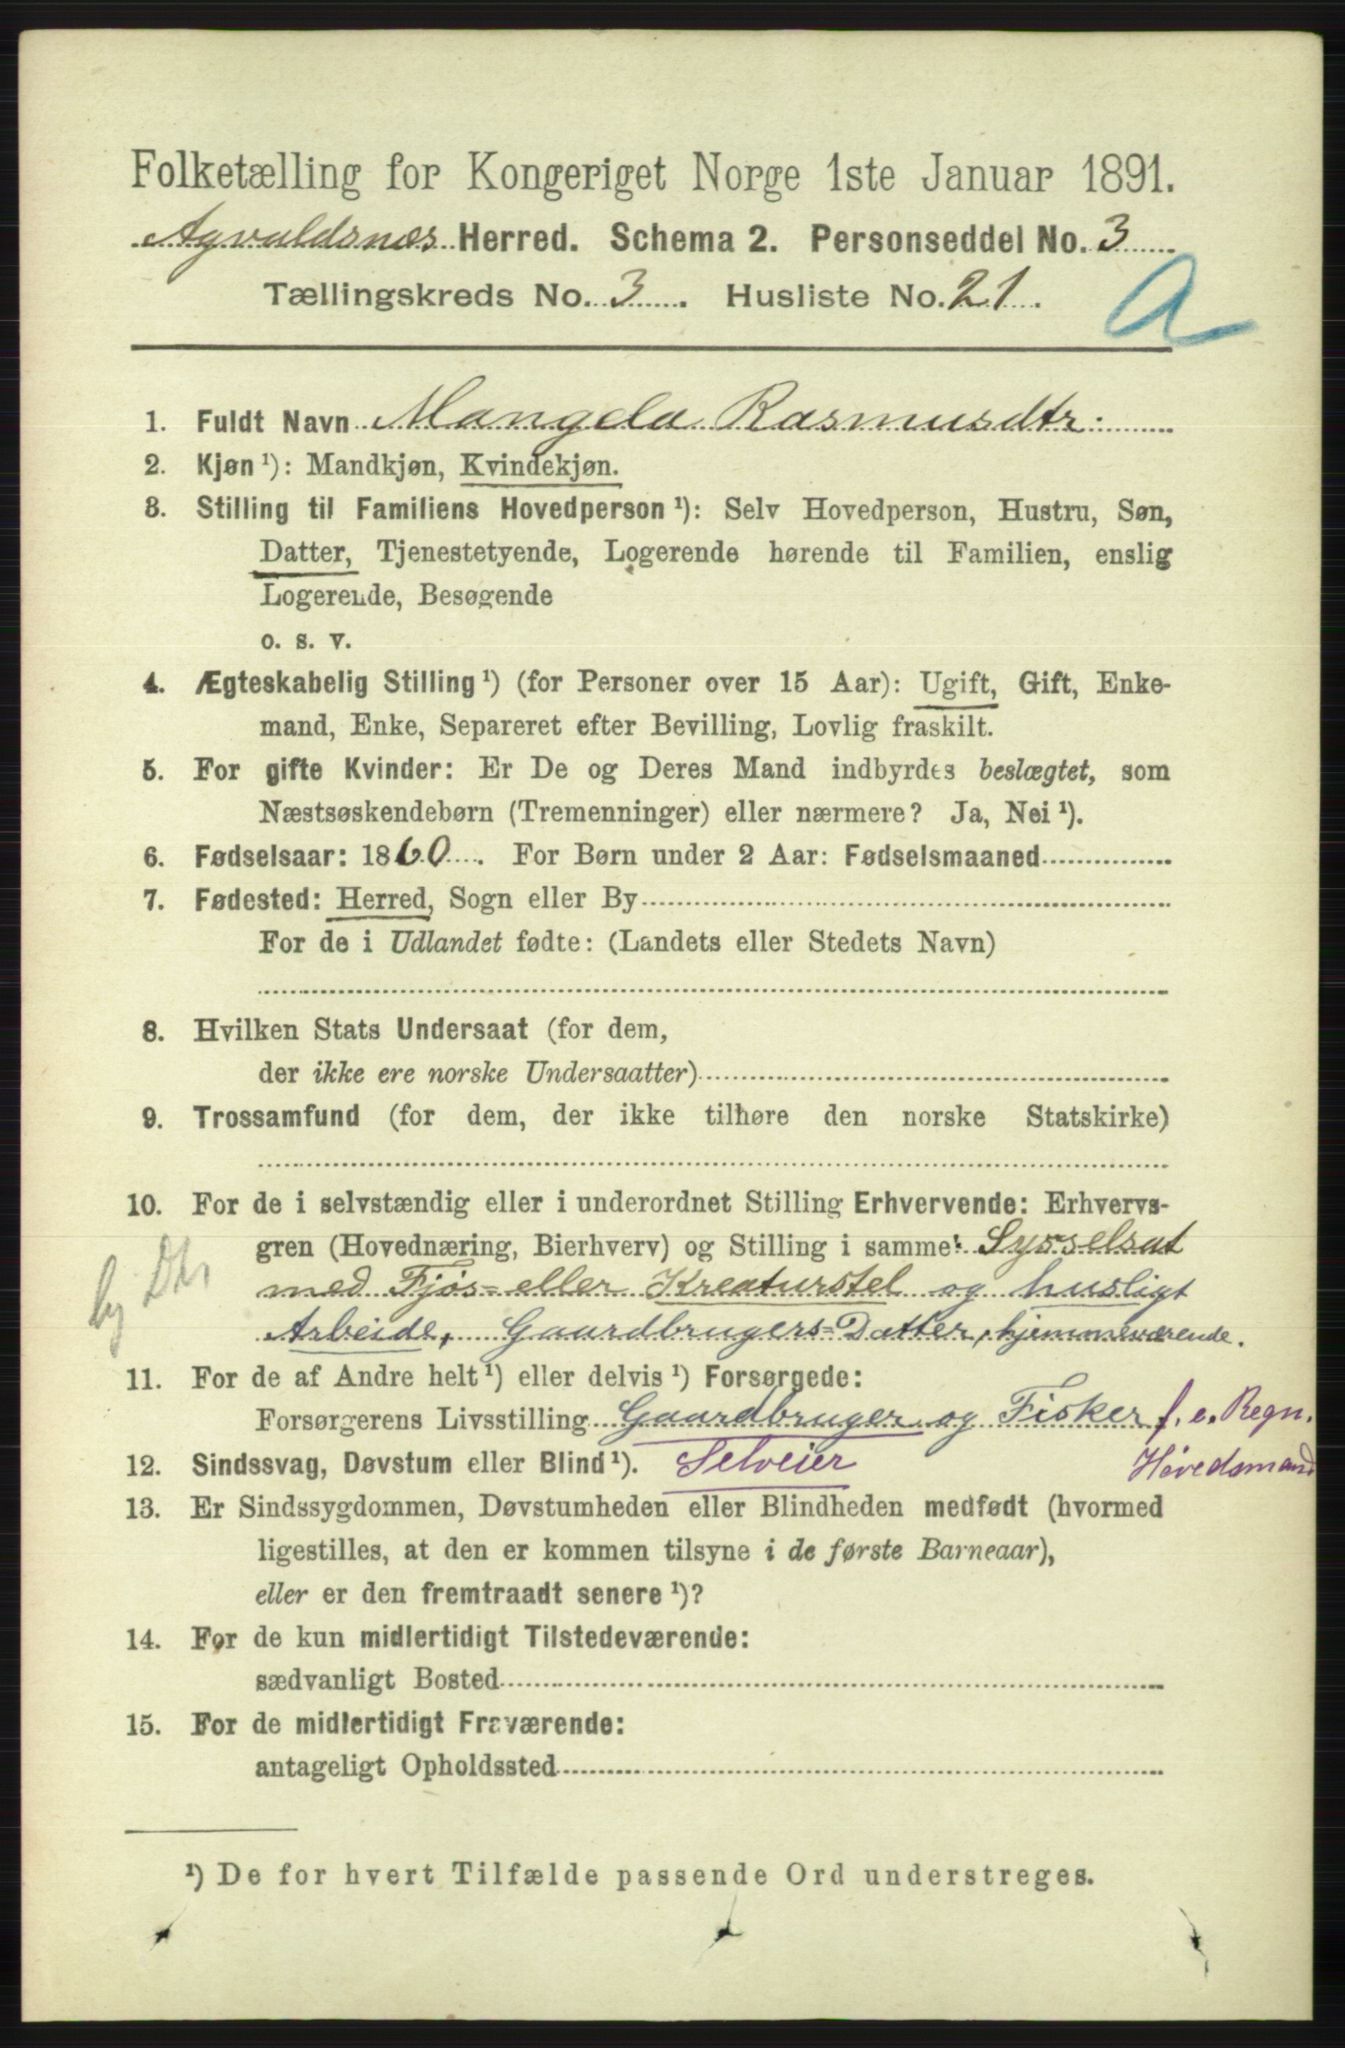 Folketælling for Kongeriget Norge 1ste Januar 1891.
Agvaldsnæs Herred. Schema 2. Personseddel No. 3
Tællingskreds No. 3. Husliste No. 21.
A
1. Fuldt Navn Mangela Rasmusdtr.
2. Kjøn ¹): Mandkjøn, Kvindekjøn.
3. Stilling til Familiens Hovedperson ¹): Selv Hovedperson, Hustru, Søn,
Datter, Tjenestetyende, Logerende hørende til Familien, enslig
Logerende, Besøgende
o. s. v.
4. Ægteskabelig Stilling ¹) (for Personer over 15 Aar): Ugift, Gift, Enke-
mand, Enke, Separeret efter Bevilling, Lovlig fraskilt.
5. For gifte Kvinder: Er De og Deres Mand indbyrdes beslægtet, som
Næstsøskendebørn (Tremenninger) eller nærmere? Ja, Nei ¹).
6. Fødselsaar: 1860. For Børn under 2 Aar: Fødselsmaaned
7. Fødested: Herred, Sogn eller By
For de i Udlandet fødte: (Landets eller Stedets Navn)
8. Hvilken Stats Undersaat (for dem,
der ikke ere norske Undersaatter)
9. Trossamfund (for dem, der ikke tilhøre den norske Statskirke)
10. For de i selvstændig eller i underordnet Stilling Erhvervende: Erhvervs-
gren (Hovednæring, Bierhverv) og Stilling i samme: Sysselsat
med Fjøs- eller Kreaturstel og husligt
Arbeide, Gaardbrugers-Datter, hjemmeværende.
11. For de af Andre helt ¹) eller delvis ¹) Forsørgede:
Forsørgerens Livsstilling Gaardbruger og Fisker f. e. Regn.
12. Sindssvag, Døvstum eller Blind ¹). Selveier Høvedsmand
13. Er Sindssygdommen, Døvstumheden eller Blindheden medfødt (hvormed
ligestilles, at den er kommen tilsyne i de første Barneaar),
eller er den fremtraadt senere ¹)?
14. For de kun midlertidigt Tilstedeværende:
sædvanligt Bosted
15. For de midlertidigt Fraværende:
antageligt Opholdssted
¹) De for hvert Tilfælde passende Ord understreges.